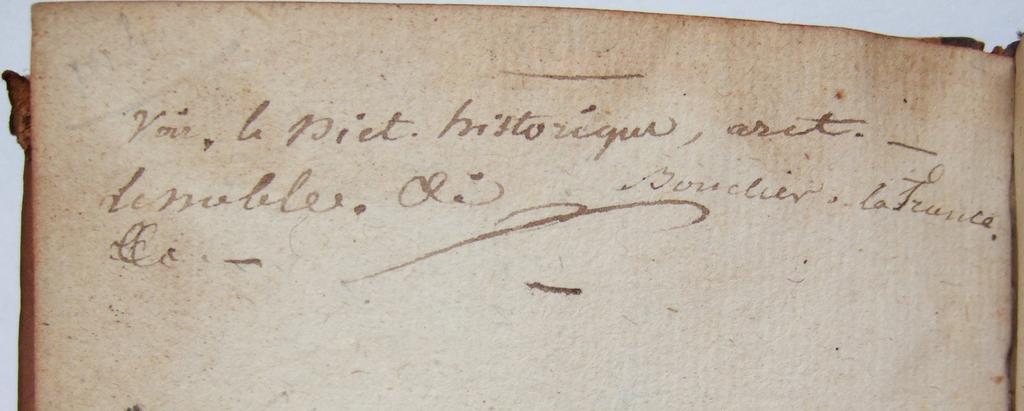 Voir, le Dict. historique, arct. —
Lenoble. &c Bouclier. la France.
&c. —